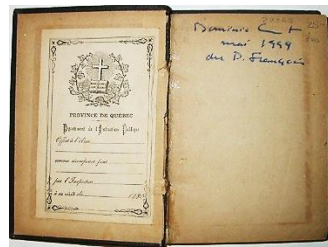 PROVINCE DE QUÉBEC
Département de l'Instruction Publique
Offert à l'élève
comme récompense pour
par l'Inspecteur
à sa visite du
Dominic
mai 1999
du P. François